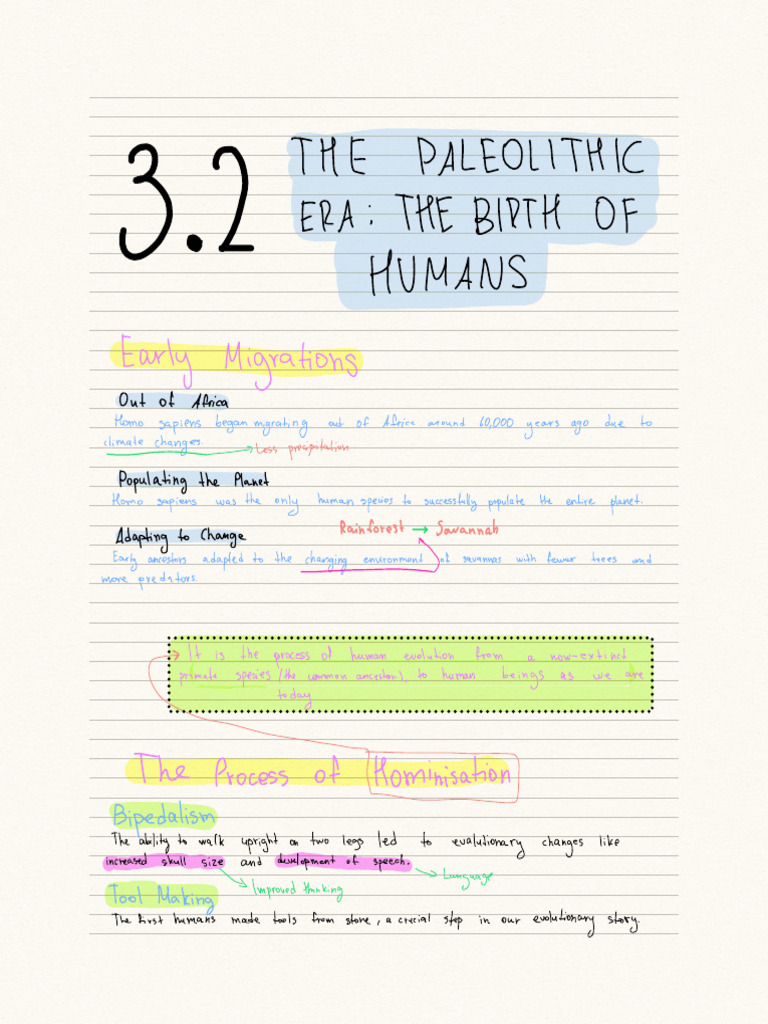 3.2
THE PALEOLITHIC
ERA: THE BIRTH OF
HUMANS
Early Migrations
Out of Africa
Homo sapiens began migrating out of Africa around 60,000 years ago due to
climate changes.
Less precipitation
Populating the Planet
Homo sapiens was the only human species to successfully populate the entire planet.
Adapting to Change
Rainforest → Savannah
Early ancestors adapted to the changing environment of savannas with fewer trees and
more predators.
It is the process of human evolution from a now-extinct
primate species (the common ancestor), to human beings as we are
today
The Process of Hominisation
Bipedalism
The ability to walk upright on two legs led to evolutionary changes like
increased skull size and development of speech.
Improved thinking
Language
Tool Making
The first humans made tools from stone, a crucial step in our evolutionary story.